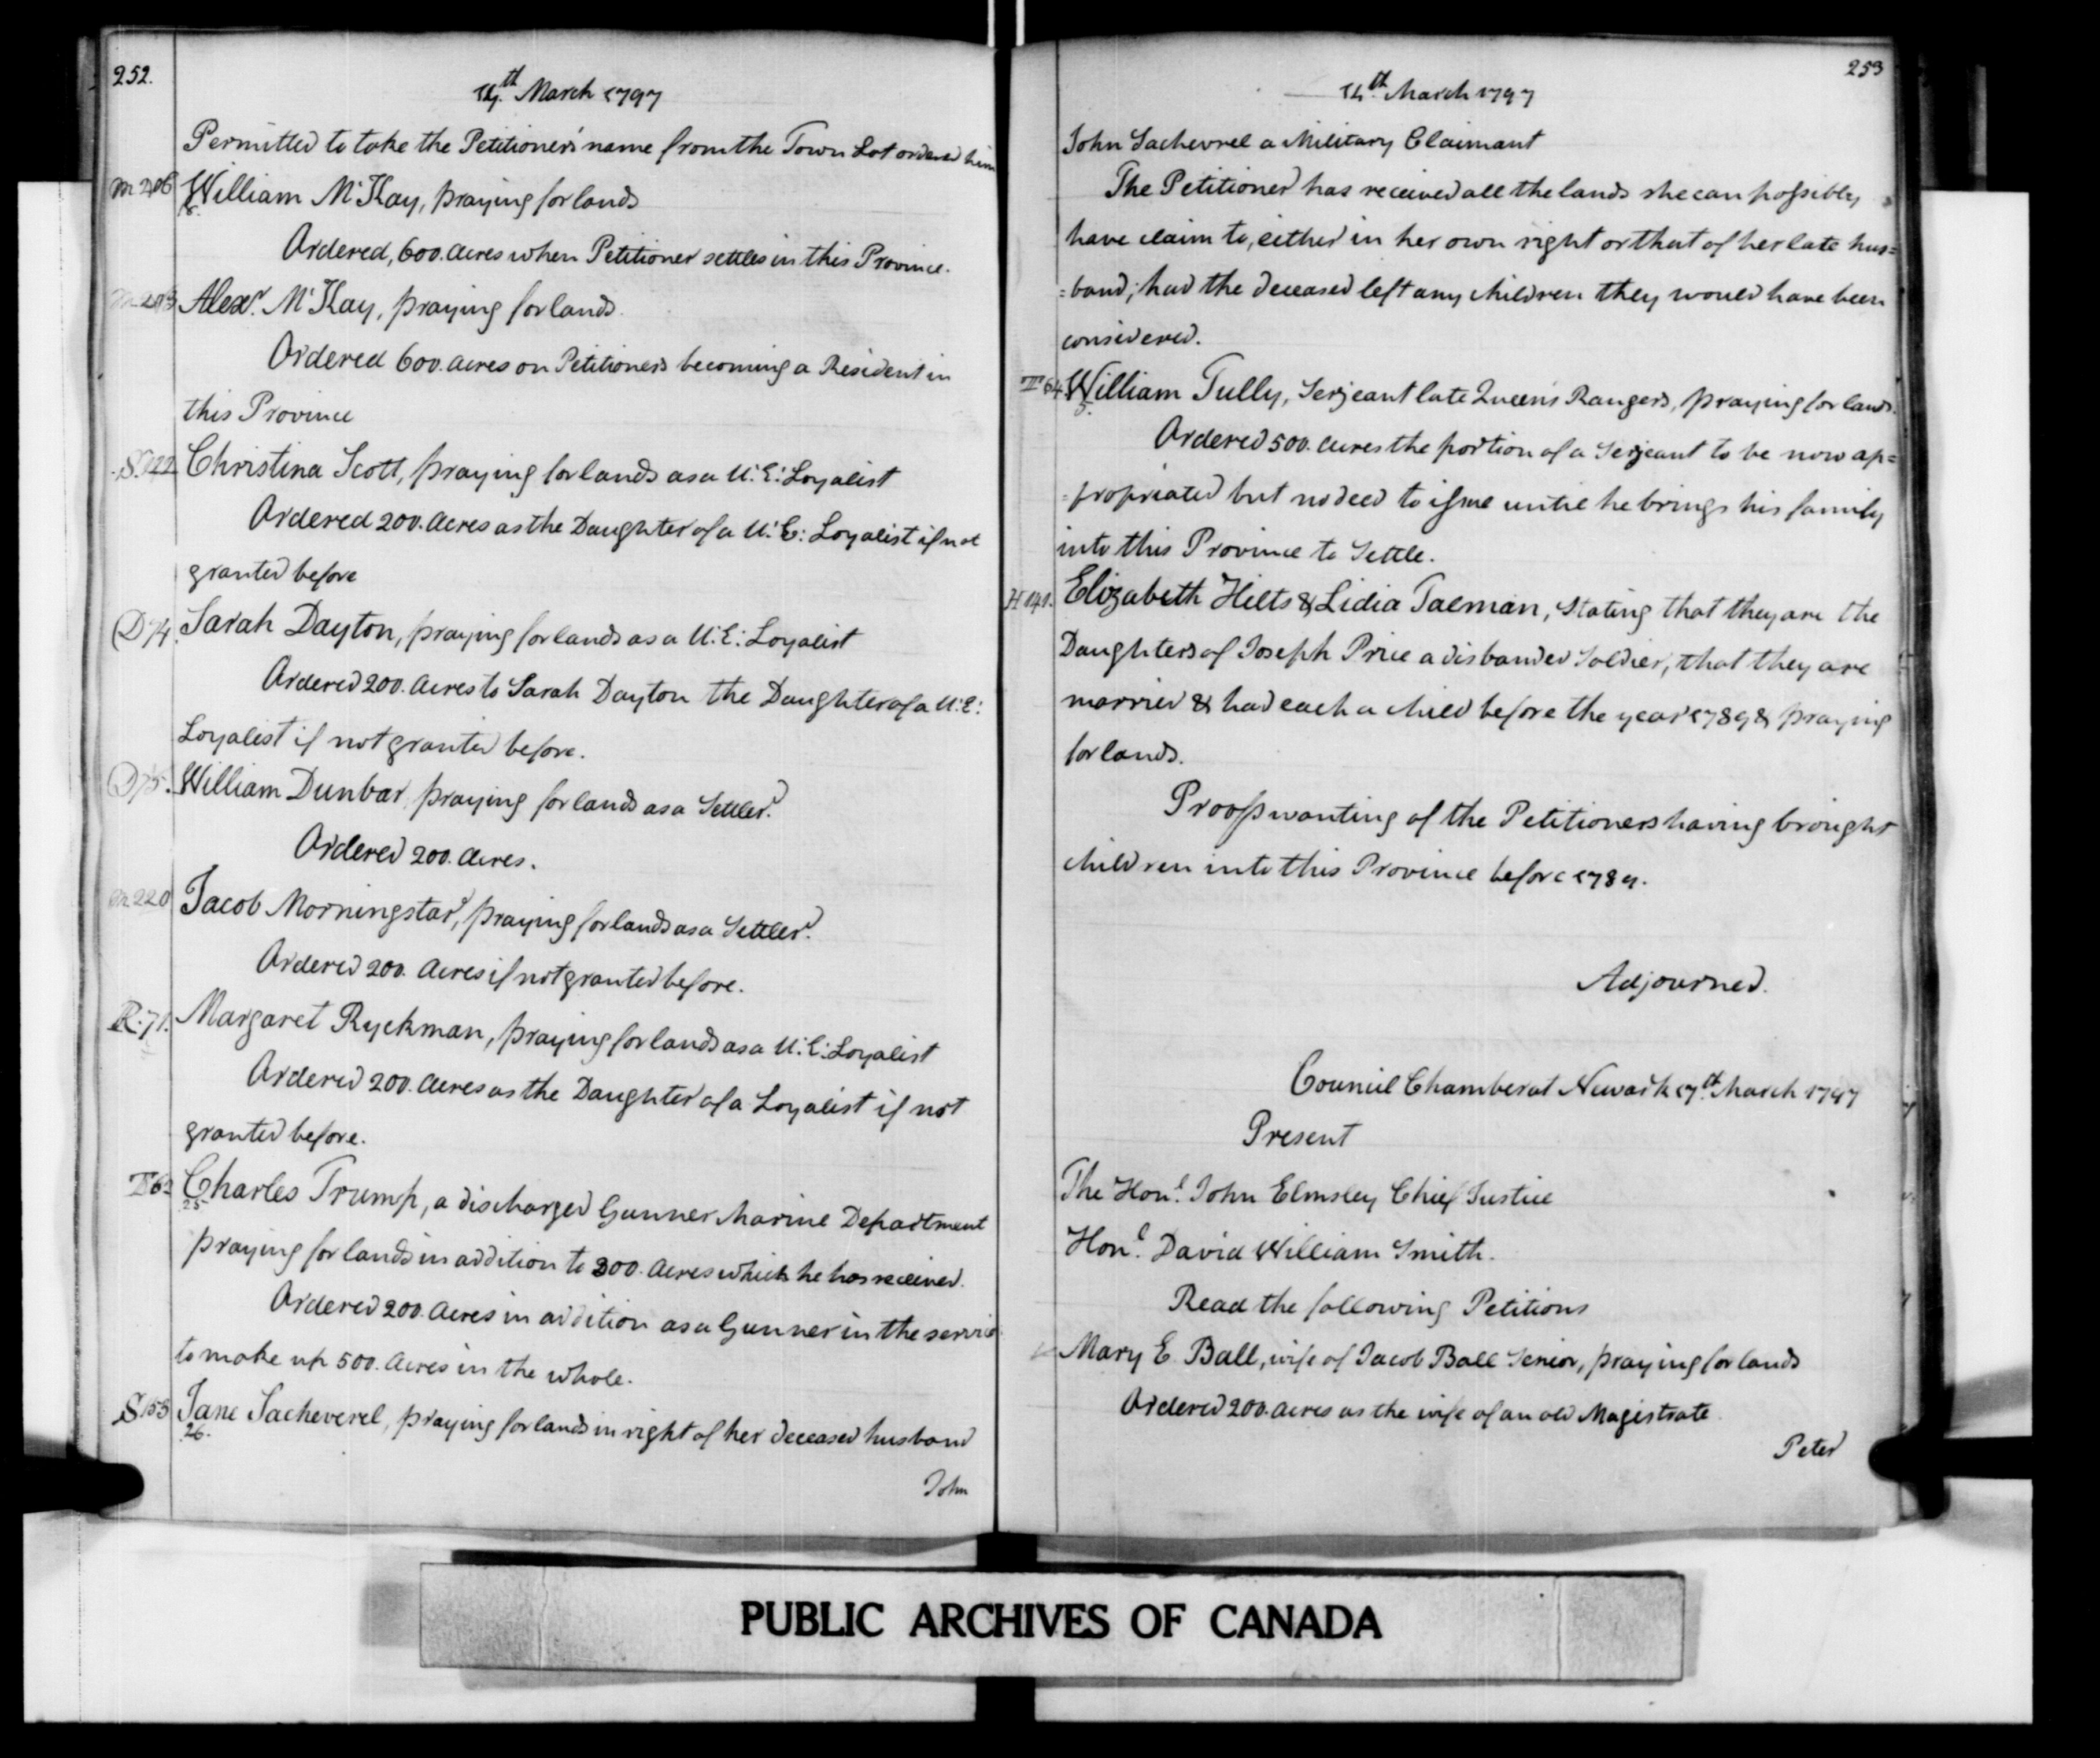 252.
14th March 1797
Permitted to take the Petitioner's name from the Town Lot ordered him
M 206 William McKay, praying for lands
Ordered, 600. Acres when Petitioner settles in this Province.
M 203 Alexr. McKay, praying for lands.
Ordered 600. Acres on Petitioners becoming a Resident in
this Province
S. 122 Christina Scott, praying for lands as a U: E: Loyalist
Ordered 200. Acres as the Daughter of a U: E: Loyalist if not
granted before
D 74. Sarah Dayton, praying for lands as a U: E: Loyalist
Ordered 200. Acres to Sarah Dayton the Daughter of a U: E:
Loyalist if not granted before.
D 75. William Dunbar, praying for lands as a Settler.
Ordered 200. Acres.
M 220 Jacob Morningstar, praying for lands as a Settler.
Ordered 200. Acres if not granted before.
R. 71. Margaret Ryckman, praying for lands as a U: E: Loyalist
Ordered 200. Acres as the Daughter of a Loyalist if not
granted before.
T 62 Charles Trump, a discharged Gunner Marine Department
25
praying for lands in addition to 300. Acres which he has received.
Ordered 200. Acres in addition as a Gunner in the service
to make up 500. Acres in the whole.
S 153 Jane Sacheverel, praying for lands in right of her deceased husband
26.
John
253
14th March 1797
John Sachevrel a Military Claimant
The Petitioner has received all the lands she can possibly
have claim to, either in her own right or that of her late hus=
=band; had the deceased left any children they would have been
considered.
T 64 William Tully, Serjeant late Queen's Rangers, praying for lands.
Ordered 500. Acres the portion of a Serjeant to be now ap=
=propriated but no deed to issue until he brings his family
into this Province to Settle.
H 141. Elizabeth Hilts & Lidia Talman, Stating that they are the
Daughters of Joseph Price a disbanded Soldier, that they are
married & had each a child before the year 1789 & praying
for lands.
Proofs wanting of the Petitioners having brought
children into this Province before 1789.
Adjourned.
Council Chamber at Newark 17th. March 1797
Present
The Honl. John Elmsley Chief Justice
Honl. David William Smith.
Read the following Petitions
Mary E. Ball, wife of Jacob Ball Senior, praying for lands
Ordered 200. Acres as the wife of an old Magistrate.
Peter
PUBLIC ARCHIVES OF CANADA